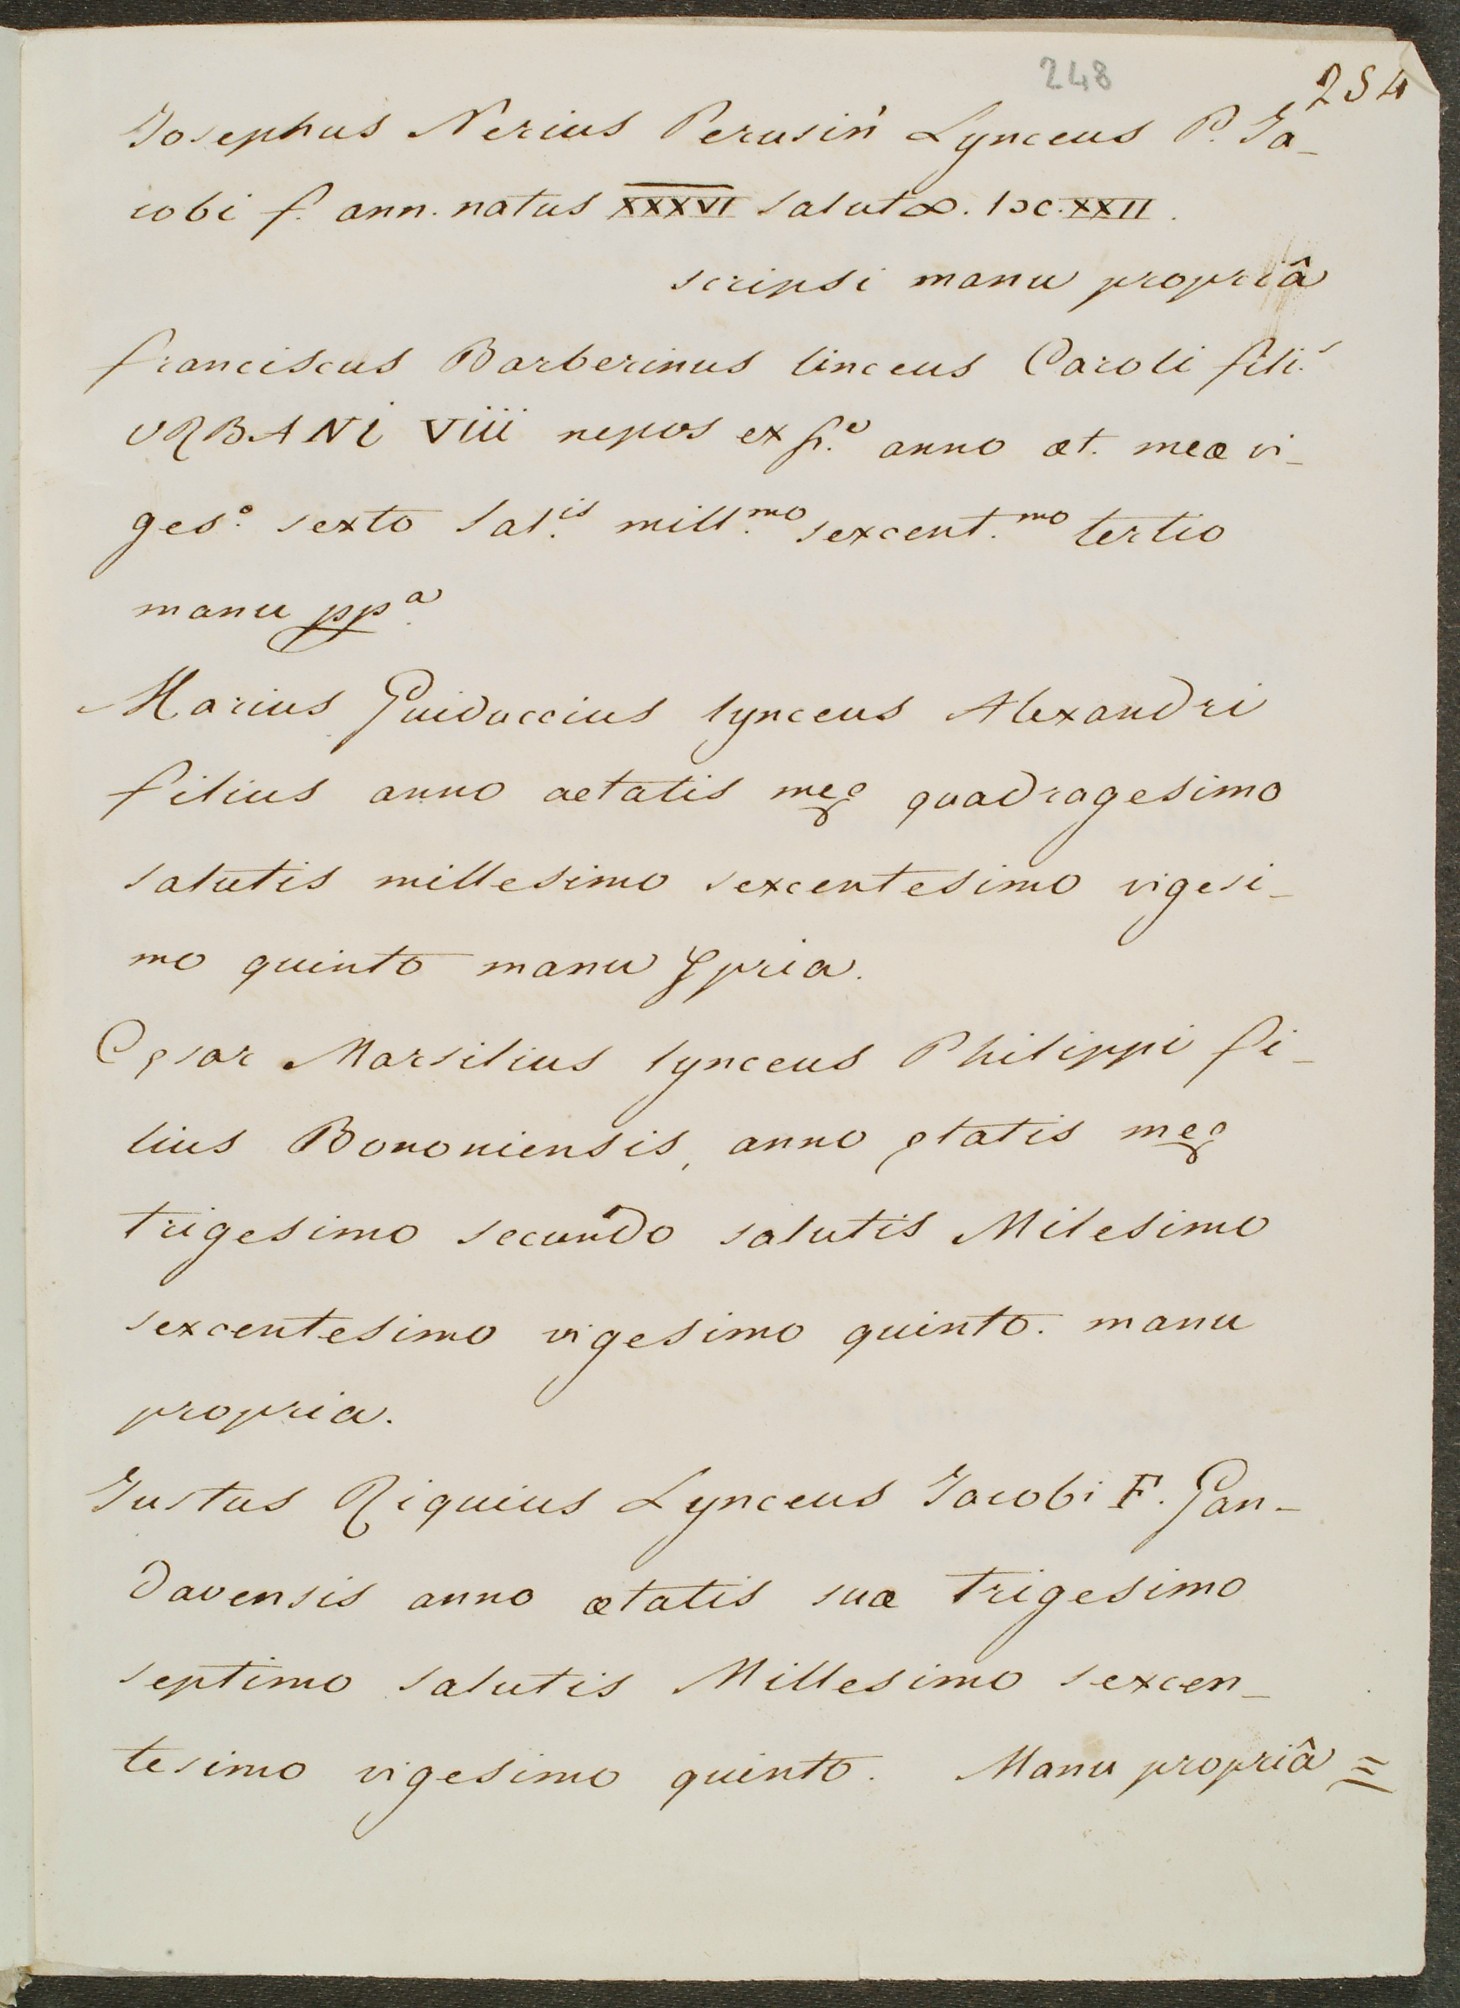 248
254
Josephus Nerius Perusiñ Lynceus P. Ja-
cobi f. ann. natus XXXVI salut ∞. IↃC.XXII.
scripsi manu propriâ
franciscus Barberinus linceus Caroli fili.s
URBANi Viii nepos ex fr.e anno æt. meæ vi-
ges.o sexto Sal.is mill.mo sexcent.mo tertio
manu pp.a
Marius Guiduccius lynceus Alexandri
filius anno aetatis meę quadragesimo
salutis millesimo sexcentesimo vigesi-
mo quinto manu ꝓpria.
Cęsar Marsilius lynceus Philippi fi-
lius Bononiensis, anno ętatis meę
trigesimo secundo salutis Milesimo
sexcentesimo vigesimo quinto. manu
propria.
Justus Riquius Lynceus Jacobi F. Gan-
davensis anno ætatis suæ trigesimo
septimo salutis Millesimo sexcen-
tesimo vigesimo quinto. Manu propriâ